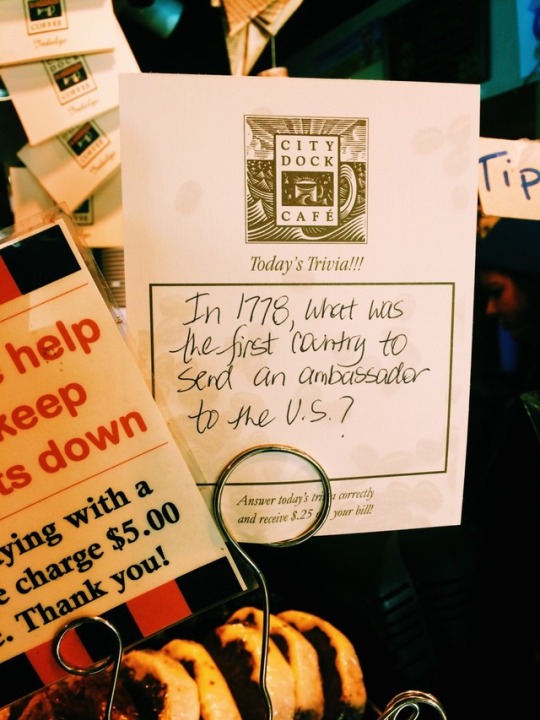 COFFEE
COFFEE
COFFEE
CITY
DOCK
CAFÉ
Tip
Today's Trivia!!!
In 1778, what was
the first country to
send an ambassador
to the U.S.?
Answer today's trivia correctly
and receive $.25 your bill!
help
keep
ts down
ying with a
charge $5.00
Thank you!